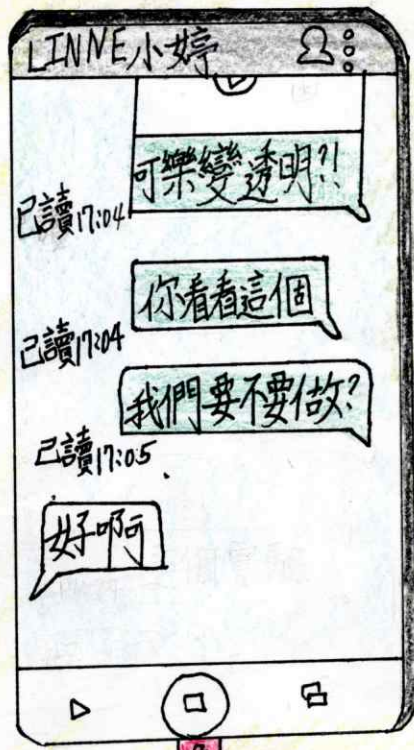 LINNE小婷
可樂變透明?!
已讀17:04
你看看這個
已讀17:04
我們要不要做?
已讀17:05
好啊